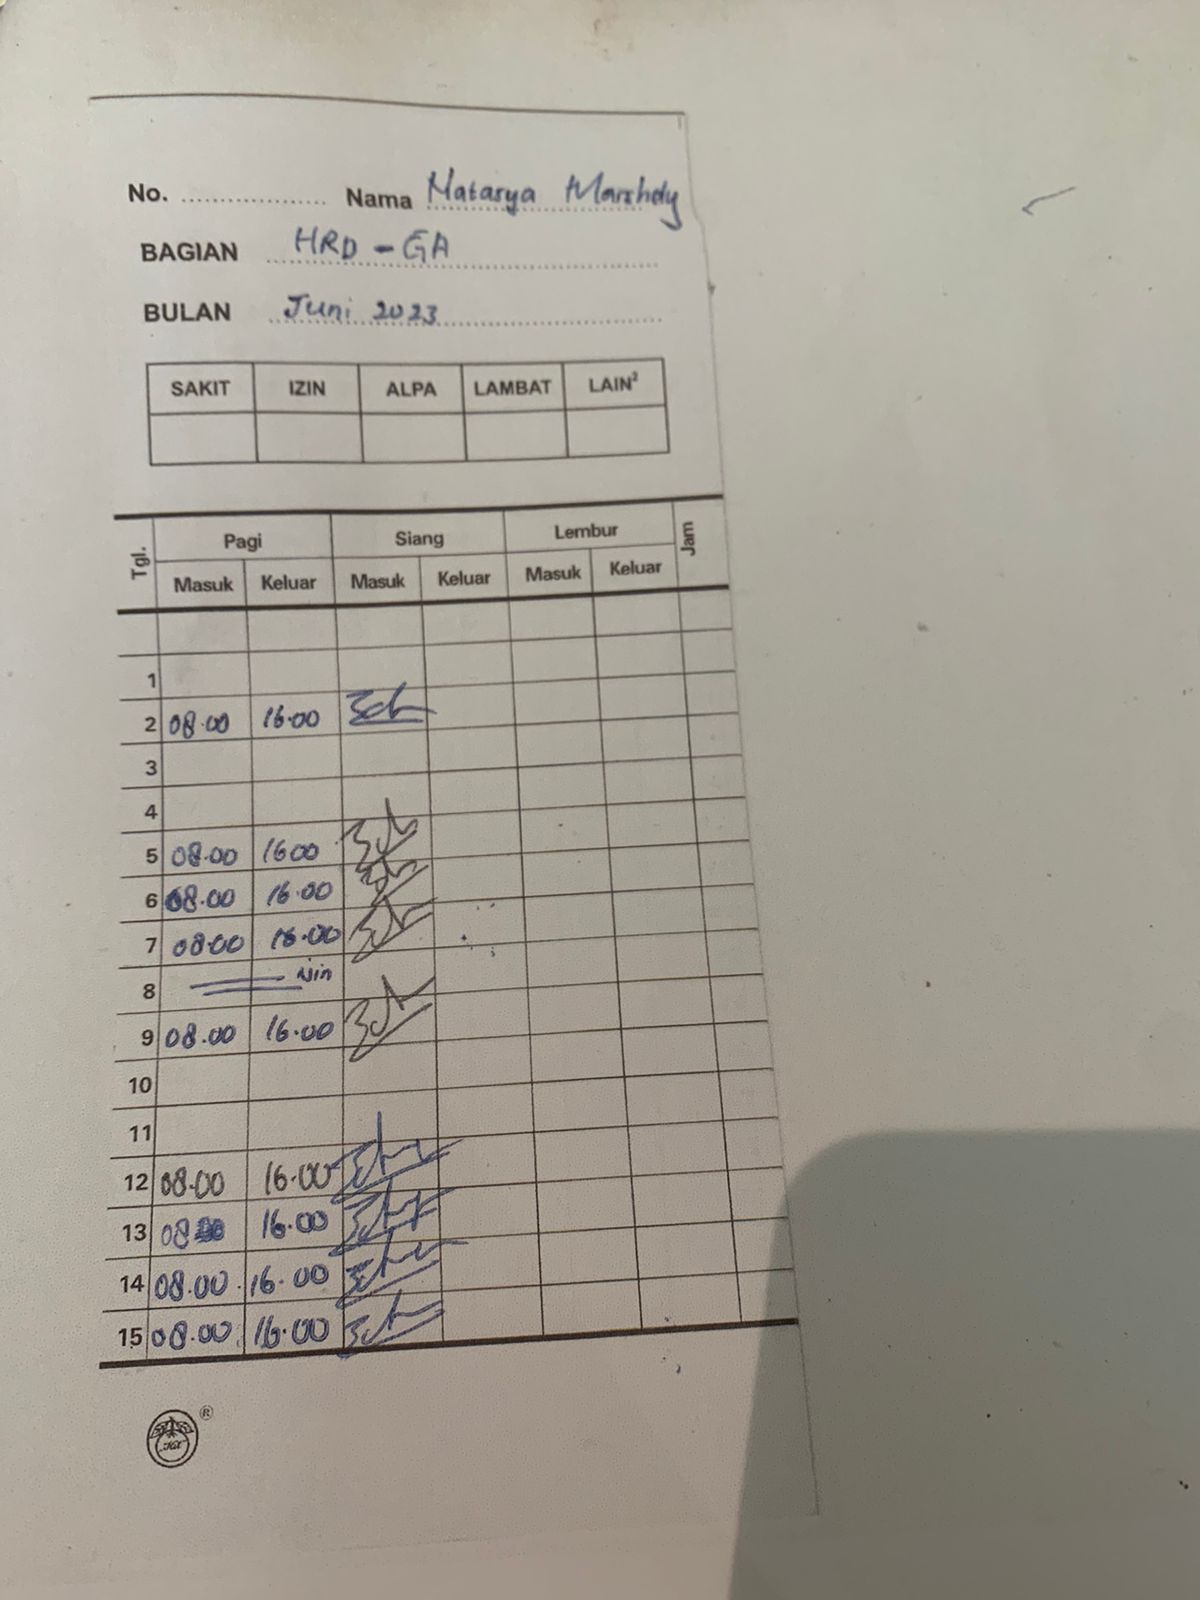 No. .................... Nama Natasya Marshdy
BAGIAN HRD - GA
BULAN Juni 2023
SAKIT IZIN ALPA LAMBAT LAIN²
Tgl. Pagi Siang Lembur Jam
Masuk Keluar Masuk Keluar Masuk Keluar
1
2 08.00 16.00
3
4
5 08.00 16 00
6 08.00 16.00
7 08.00 16.00
8 izin
9 08.00 16.00
10
11
12 08.00 16.00
13 08 16.00
14 08.00 16.00
15 08.00 16.00
®